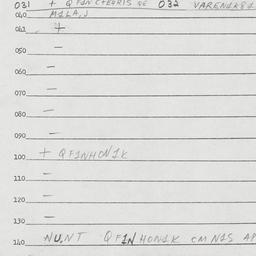 031 + QFINCTEQRIS QE 032 VARENIK81
040 MILA,J
041 +
050 -
060 -
070 -
080 -
090 -
100 + QFINHONIK
110 -
120 -
130 -
140 NU.NT QFINHONIK OMNIS AP